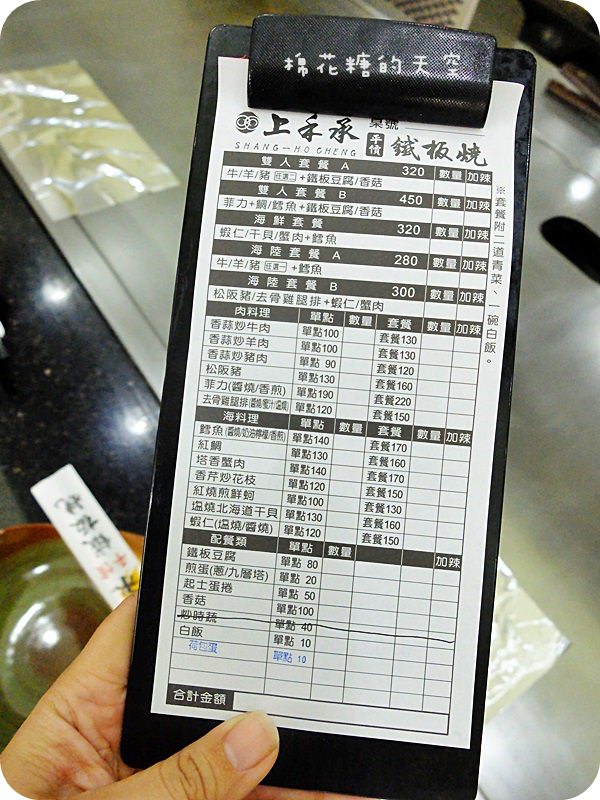 棉花糖的天空
桌號
上禾承 平價 鐵板燒
SHANG-HO CHENG
雙人套餐A 320 數量 加辣
牛/羊/豬 任選二 +鐵板豆腐/香菇
雙人套餐B 450 數量 加辣
菲力+鯛/鱈魚+鐵板豆腐/香菇
海鮮套餐 320 數量 加辣
蝦仁/干貝/蟹肉+鱈魚
海陸套餐A 280 數量 加辣
牛/羊/豬 任選一 +鱈魚
海陸套餐B 300 數量 加辣
松阪豬/去骨雞腿排+蝦仁/蟹肉
※套餐附二道青菜、一碗白飯。
肉料理 單點 數量 套餐 數量 加辣
香蒜炒牛肉 單點100 套餐130
香蒜炒羊肉 單點100 套餐130
香蒜炒豬肉 單點 90 套餐120
松阪豬 單點130 套餐160
菲力(醬燒/香煎) 單點190 套餐220
去骨雞腿排(醬燒/蜜汁/塩燒) 單點120 套餐150
海料理 單點 數量 套餐 數量 加辣
鱈魚(醬燒/奶油檸檬/香煎) 單點140 套餐170
紅鯛 單點130 套餐160
塔香蟹肉 單點140 套餐170
香芹炒花枝 單點120 套餐150
紅燒煎鮮蚵 單點100 套餐130
塩燒北海道干貝 單點130 套餐160
蝦仁(塩燒/醬燒) 單點120 套餐150
配餐類 單點 數量 加辣
鐵板豆腐 單點 80
煎蛋(蔥/九層塔) 單點 20
起士蛋捲 單點 50
香菇 單點100
炒時蔬 單點 40
白飯 單點 10
荷包蛋 單點 10
合計金額